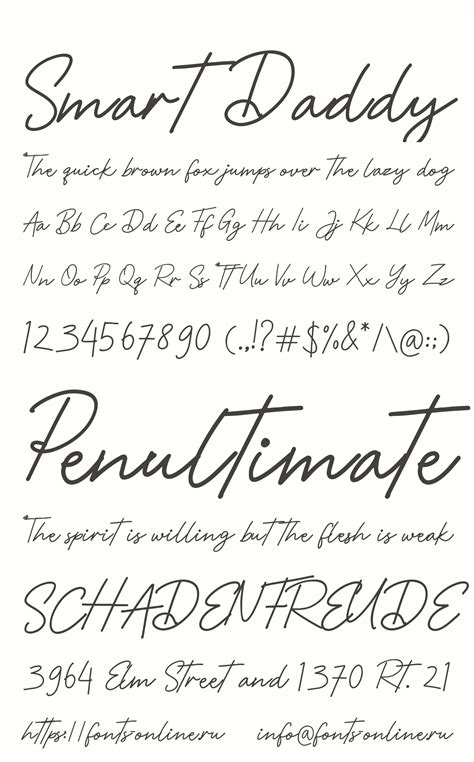 Smart Daddy
The quick brown fox jumps over the lazy dog
Aa Bb Cc Dd Ee Ff Gg Hh Ii Jj Kk Ll Mm
Nn Oo Pp Qq Rr Ss Tt Uu Vv Ww Xx Yy Zz
1234567890 (.,!?#$%&*/\@:;)
Penultimate
The spirit is willing but the flesh is weak
SCHADENFREUDE
3964 Elm Street and 1370 Rt. 21
https://fonts-online.ru info@fonts-online.ru